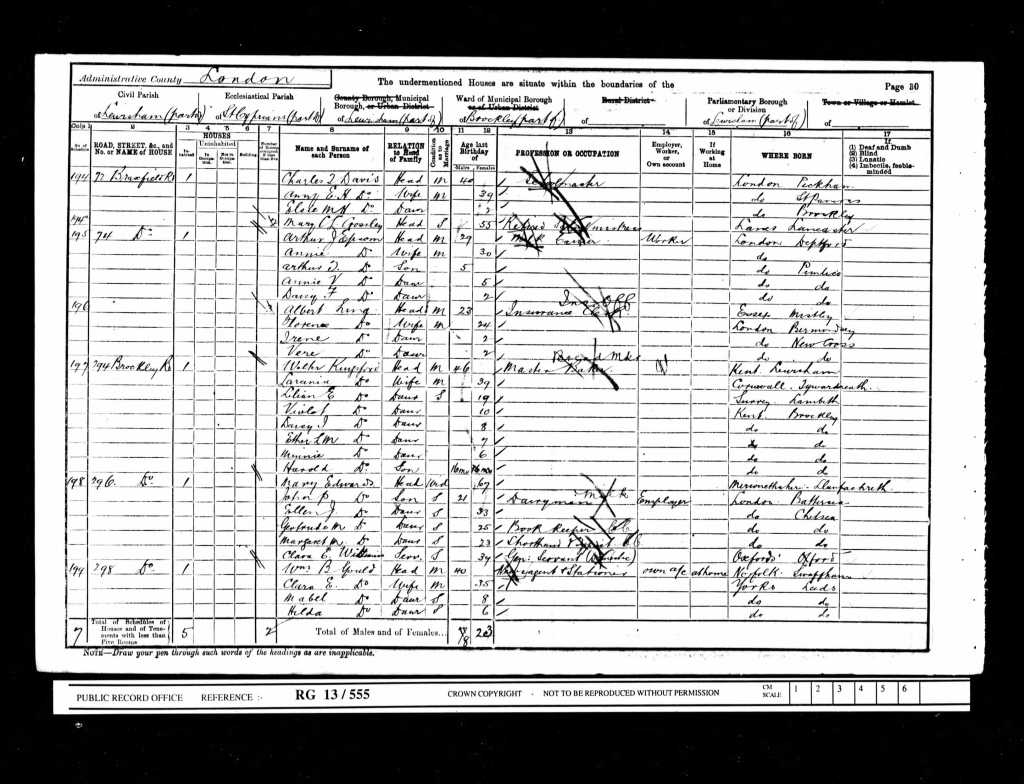 Administrative County London
The undermentioned Houses are situate within the boundaries of the
Page 30
Civil Parish
of Lewisham (part of)
Ecclesiastical Parish
of St Cyprian (part of)
County Borough, Municipal Borough, or Urban District
of Lewisham (part of)
Ward of Municipal Borough or of Urban District
of Brockley (part of)
Rural District
of
Parliamentary Borough or Division
of Lewisham (part of)
Town or Village or Hamlet
of
Cols. 1 2 3 4 5 6 7 8 9 10 11 12 13 14 15 16 17
No. of Schedule
ROAD, STREET, &c., and No. or NAME of HOUSE
HOUSES
Inhabited
Uninhabited
In Occupation
Not in Occupation
Building
Name and Surname of each Person
RELATION to Head of Family
Condition as to Marriage
Age last Birthday of
Males Females
PROFESSION OR OCCUPATION
Employer, Worker, or Own account
If Working at Home
WHERE BORN
If (1) Deaf and Dumb (2) Blind (3) Lunatic (4) Imbecile, feeble-minded
194 72 1 Charles Davis Head M 40 London Peckham
Anny E. H. Do Wife M 39 do St Pancras
Elsie M H Do Daur 2 do Brockley
Mary Head S 55 Retired Lancs Lancaster
195 74 Do 1 Arthur J Epsom Head M 29 Milk Carrier Worker London Deptford
Annie Do Wife M 30 do
Arthur Do Son 5 do Pimlico
Annie V Do Daur 5 do do
Daisy F Do Daur 2 do do
196 Albert King Head M 23 Insurance Essex Mistley
Florence Do Wife M 24 London Bermondsey
Irene Do Daur 2 do New Cross
Vere Do Daur 2 do do
197 294 Brockley Rd 1 Walter Head M 46 Bread Mkr Kent Lewisham
Lavinia Do Wife M 39 Cornwall Tywardreath
Lilian E Do Daur S 19 Surrey Lambeth
Violet Do Daur 10 Kent Brockley
Daisy I Do Daur 8 do do
Ethel L M Do Daur 7 do do
Minnie Do Daur 6 do do
Harold Do Son 16mo do do
198 296 Do 1 Mary Edwards Head Wid 67 Merionethshire Llanfachreth
John P Do Son S 21 Dairyman Milk Employer London Battersea
Ellen J Do Daur S 33 do Chelsea
Gertrude M Do Daur S 25 Book Keeper do do
Margaret M Do Daur S 23 Shorthand do do
Clara E. Williams Serv S 39 Gen. Servant (Domestic) Oxfords Oxford
199 298 Do 1 Wm B Gould Head M 40 Newsagent & Stationer own a/c at home Norfolk Swaffham
Clara E. Do Wife M 35 Yorks Leeds
Mabel Do Daur S 8 do do
Hilda Do Daur S 6 do do
7 Total of Schedules of Houses and of Tenements with less than Five Rooms 5 2 Total of Males and of Females... 8 23
NOTE—Draw your pen through such words of the headings as are inapplicable.
PUBLIC RECORD OFFICE REFERENCE :- RG 13/555 CROWN COPYRIGHT - NOT TO BE REPRODUCED WITHOUT PERMISSION CM SCALE 1 2 3 4 5 6